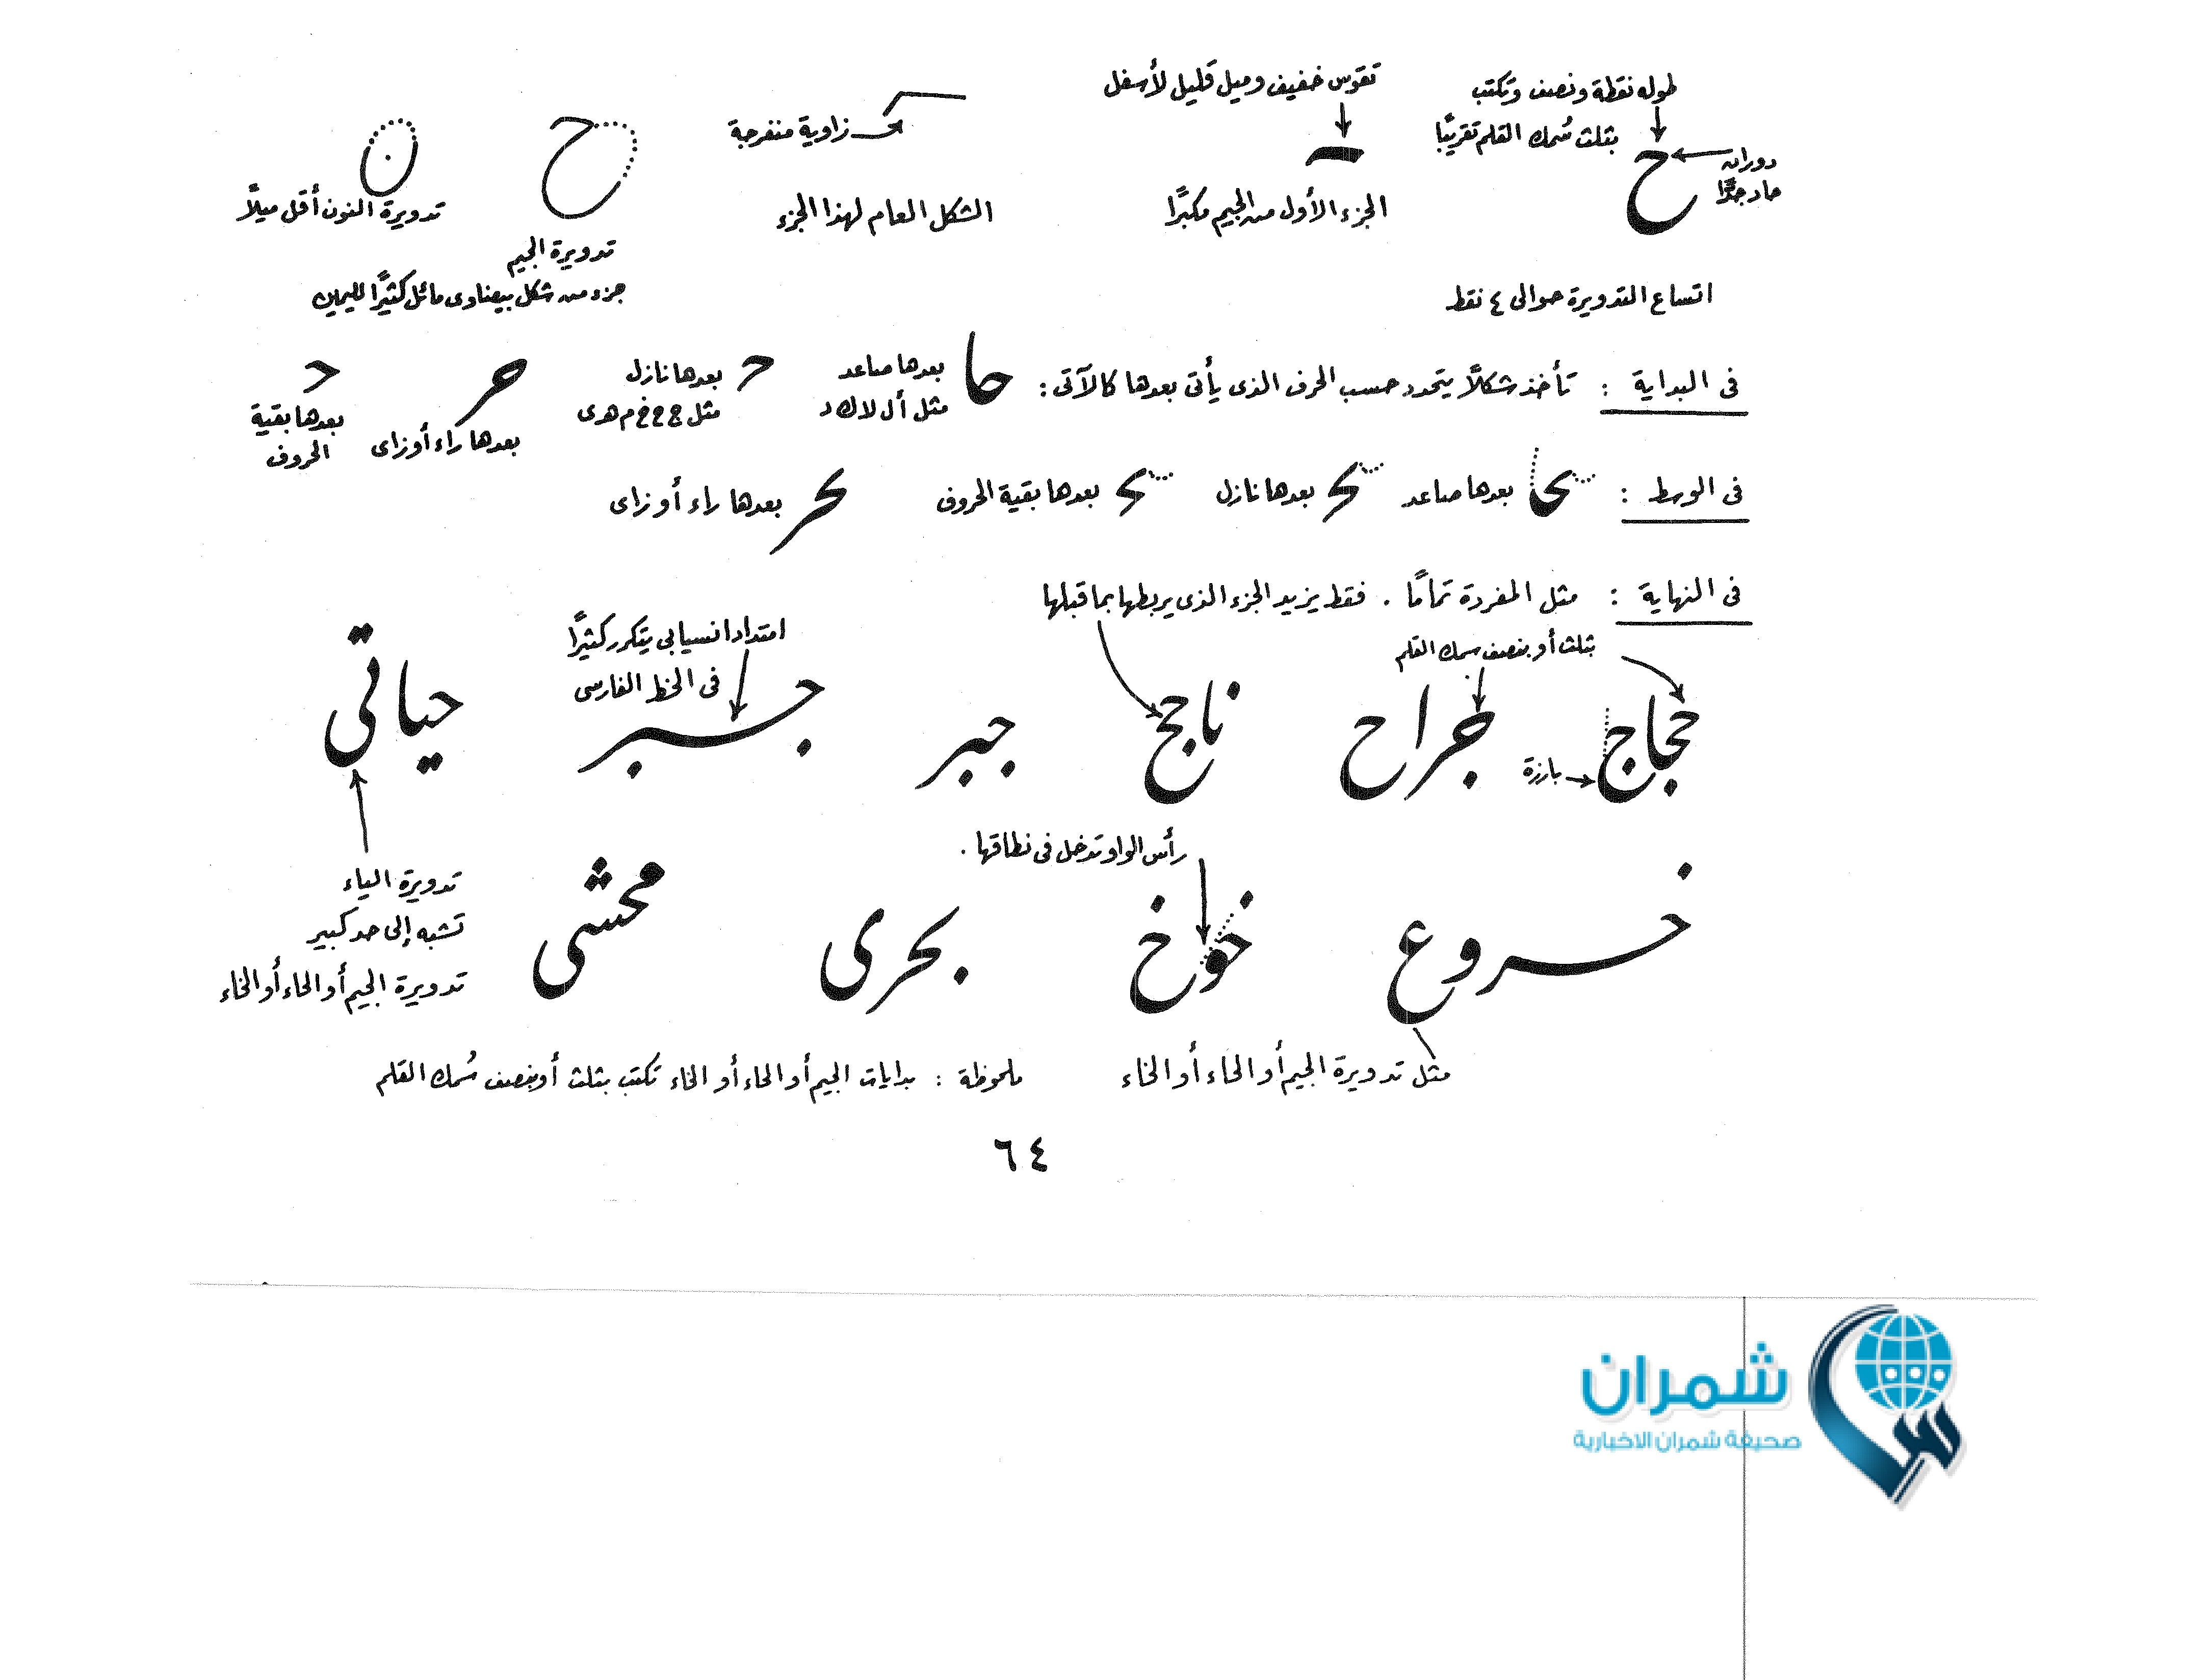 طوله نقطة ونصف وتكتب
بثلث سُمك القلم تقريبًا
دوران
حاد جدًا
ح
تقوس خفيف وميل قليل لأسفل
الجزء الأول من الجيم مكبرًا
زاوية منفرجة
الشكل العام لهذا الجزء
ح
تدويرة الجيم
جزء من شكل بيضاوى مائل كثيرًا لليمين
ن
تدويرة النون أقل ميلاً
اتساع التدويرة حوالى ٤ نقط
فى البداية : تأخذ شكلاً يتحدد حسب الحرف الذى يأتى بعدها كالآتى :
حا
بعدها صاعد
مثل أ ل لا ك د
بعدها نازل
مثل ج ح خ م هـ ى
حر
بعدها راء أو زاى
بعدها بقية
الحروف
فى الوسط :
بعدها صاعد
بعدها نازل
بعدها بقية الحروف
بعدها راء أو زاى
فى النهاية : مثل المفردة تمامًا . فقط يزيد الجزء الذى يربطها بما قبلها
بثلث أو بنصف سمك القلم
امتداد انسيابى يتكرر كثيرًا
فى الخط الفارسى
حجاج
بارزة
جراح
ناجح
جبر
جبر
حياتى
رأس الواو تدخل فى نطاقها .
خروع
خوخ
بحرى
محشى
تدويرة الياء
تشبه إلى حد كبير
تدويرة الجيم أو الحاء أو الخاء
مثل تدويرة الجيم أو الحاء أو الخاء
ملحوظة : بدايات الجيم أو الحاء أو الخاء تكتب بثلث أو بنصف سُمك القلم
٦٤
شمران
صحيفة شمران الاخبارية